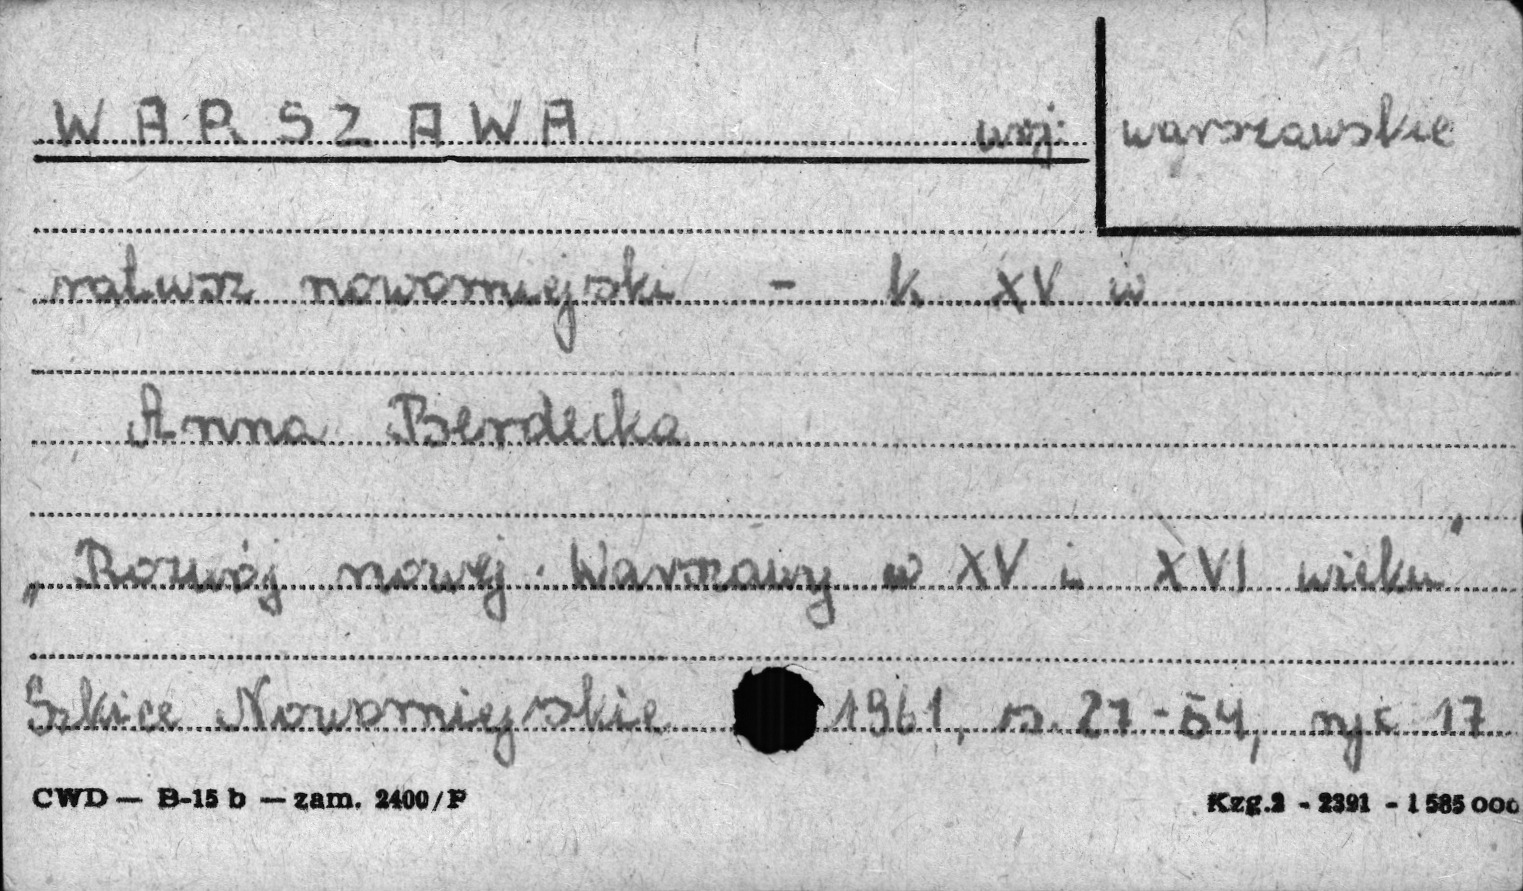 WARSZAWA woj: warszawskie
ratusz nowomiejski - k XV w
Anna Berdecka
„Rozwój nowej Warszawy w XV i XVI wieku"
Szkice Nowomiejskie 1961, s. 27-54, ryc 17
CWD — B-15 b — zam. 2400/P Kzg.2 - 2391 - 1 585 000